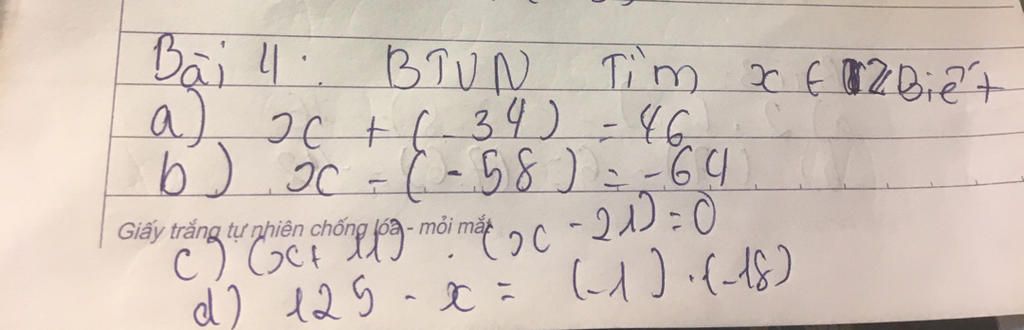 Bài 4: BTVN Tìm x ∈ Z Biết
a) x + (-34) = 46
b) x - (-58) = -64
Giấy trắng tự nhiên chống lóa - mỏi mắt
c) (x + 11) . (x - 21) = 0
d) 125 - x = (-1) . (-18)